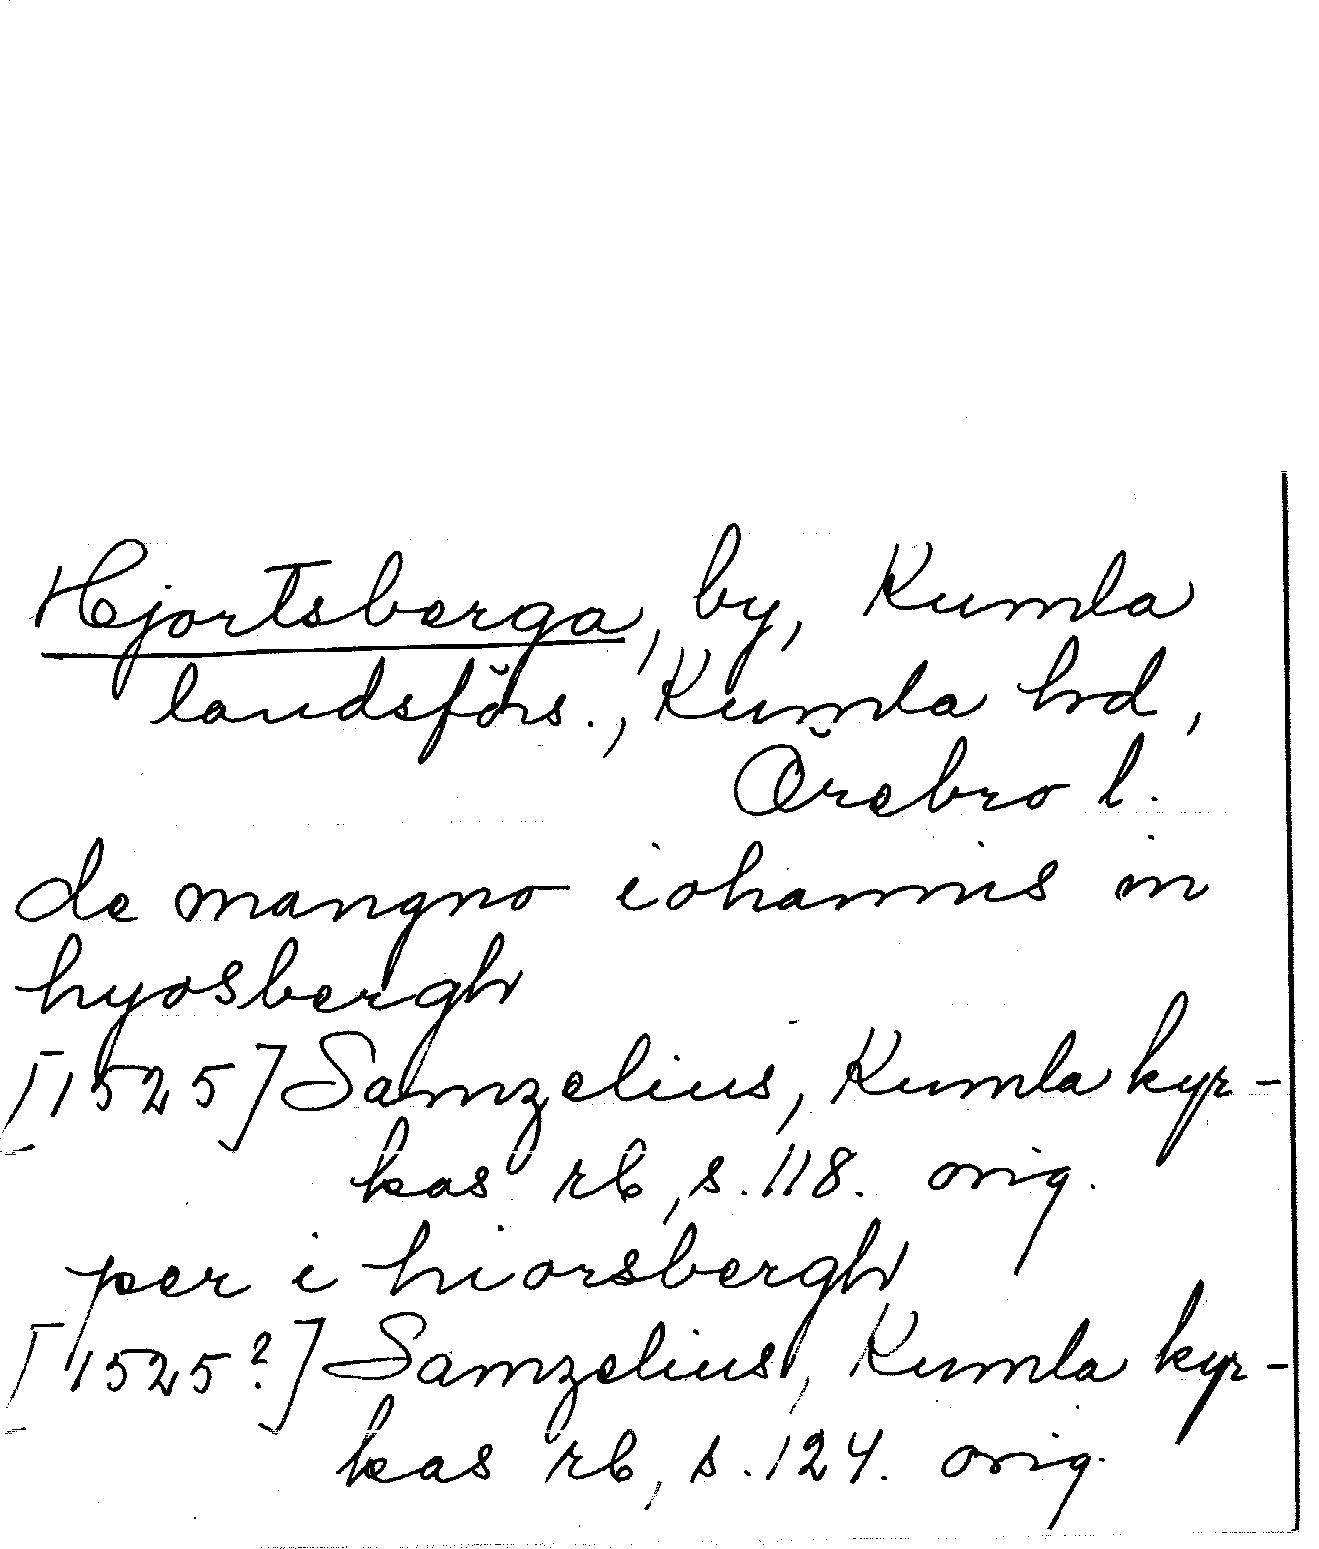 Hjortsberga, by, Kumla
landsförs., Kumla hd,
Örebro l.
de mangno iohannis in
hyosbergh
[1525] Samzelius, Kumla kyr-
kas rb, s. 118. orig.
per i hiorsbergh
[1525?] Samzelius, Kumla kyr-
kas rb, s. 124. orig.